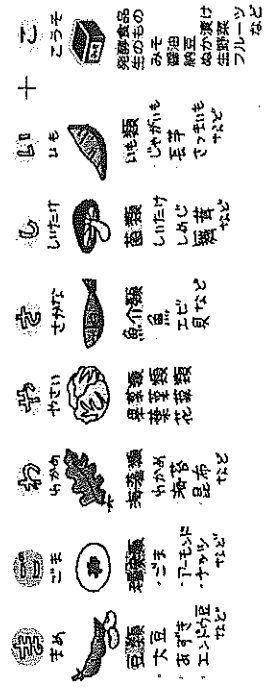 ま
まめ
豆類
・大豆
・あずき
・エンドウ豆
など
ご
ごま
種実類
・ごま
・アーモンド
・ナッツ
など
わ
わかめ
海藻類
わかめ
海苔
昆布
など
や
やさい
果菜類
葉菜類
花菜類
さ
さかな
魚介類
魚
エビ
貝など
し
しいたけ
茸類
しいたけ
しめじ
など
い
いも
いも類
じゃがいも
長芋
さつまいも
など
+
こ
こうそ
発酵食品
生のもの
みそ
醤油
納豆
ぬか漬け
生野菜
フルーツ
など